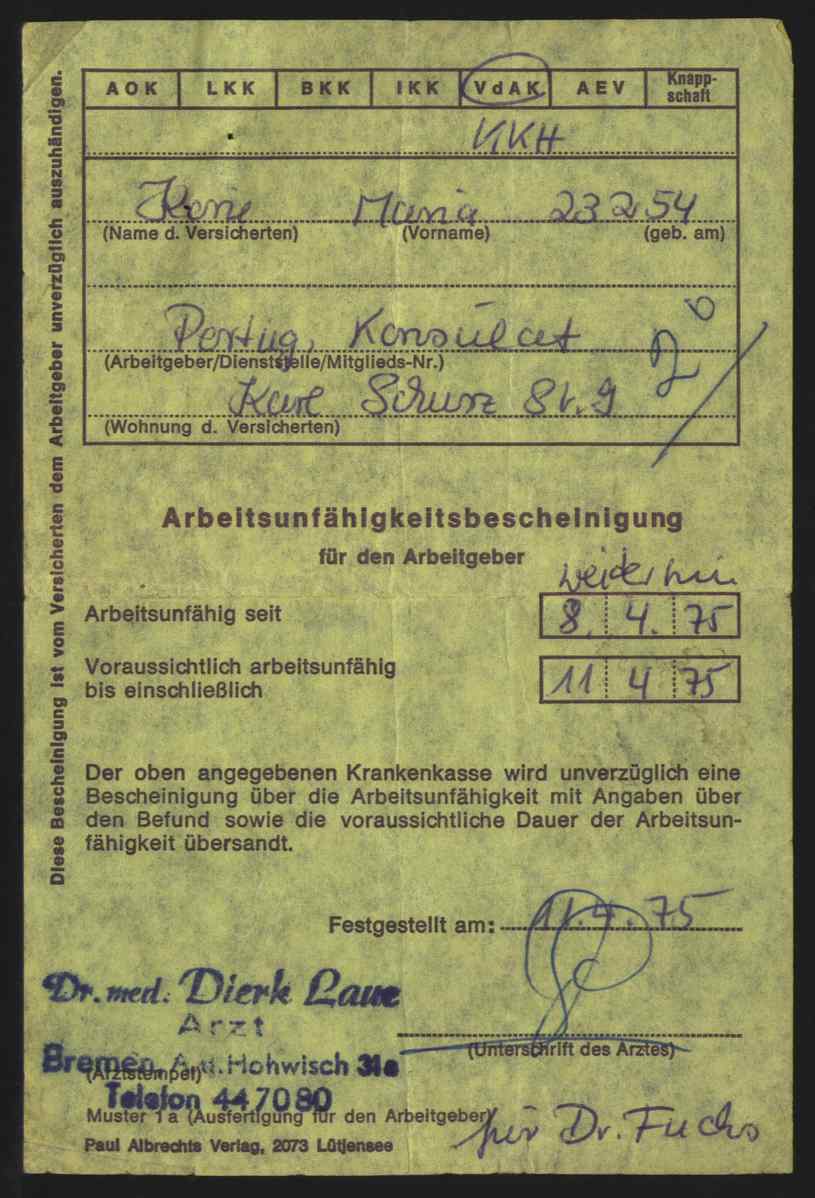 AOK LKK BKK IKK VdAK AEV Knapp-schaft
KKH
Maria 23 2 54
(Name d. Versicherten) (Vorname) (geb. am)
Portug. Konsulat
(Arbeitgeber/Dienststelle/Mitglieds-Nr.)
Karl Schurz St. 9
(Wohnung d. Versicherten)
Arbeitsunfähigkeitsbescheinigung
für den Arbeitgeber
weiterhin
Arbeitsunfähig seit 8. 4. 75
Voraussichtlich arbeitsunfähig
bis einschließlich 11 4 75
Der oben angegebenen Krankenkasse wird unverzüglich eine
Bescheinigung über die Arbeitsunfähigkeit mit Angaben über
den Befund sowie die voraussichtliche Dauer der Arbeitsun-
fähigkeit übersandt.
Festgestellt am: 11.4.75
Dr. med. Dierk Laue
Arzt
(Unterschrift des Arztes)
Bremen, A. d. Hohwisch 31a
(Arztstempel)
Telefon 44 70 80
Muster 1a (Ausfertigung für den Arbeitgeber)
für Dr. Fuchs
Paul Albrechts Verlag, 2073 Lütjensee
Diese Bescheinigung ist vom Versicherten dem Arbeitgeber unverzüglich auszuhändigen.